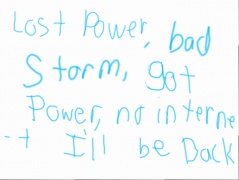 Lost Power, bad
Storm, got
Power, no interne
-t I'll be Back